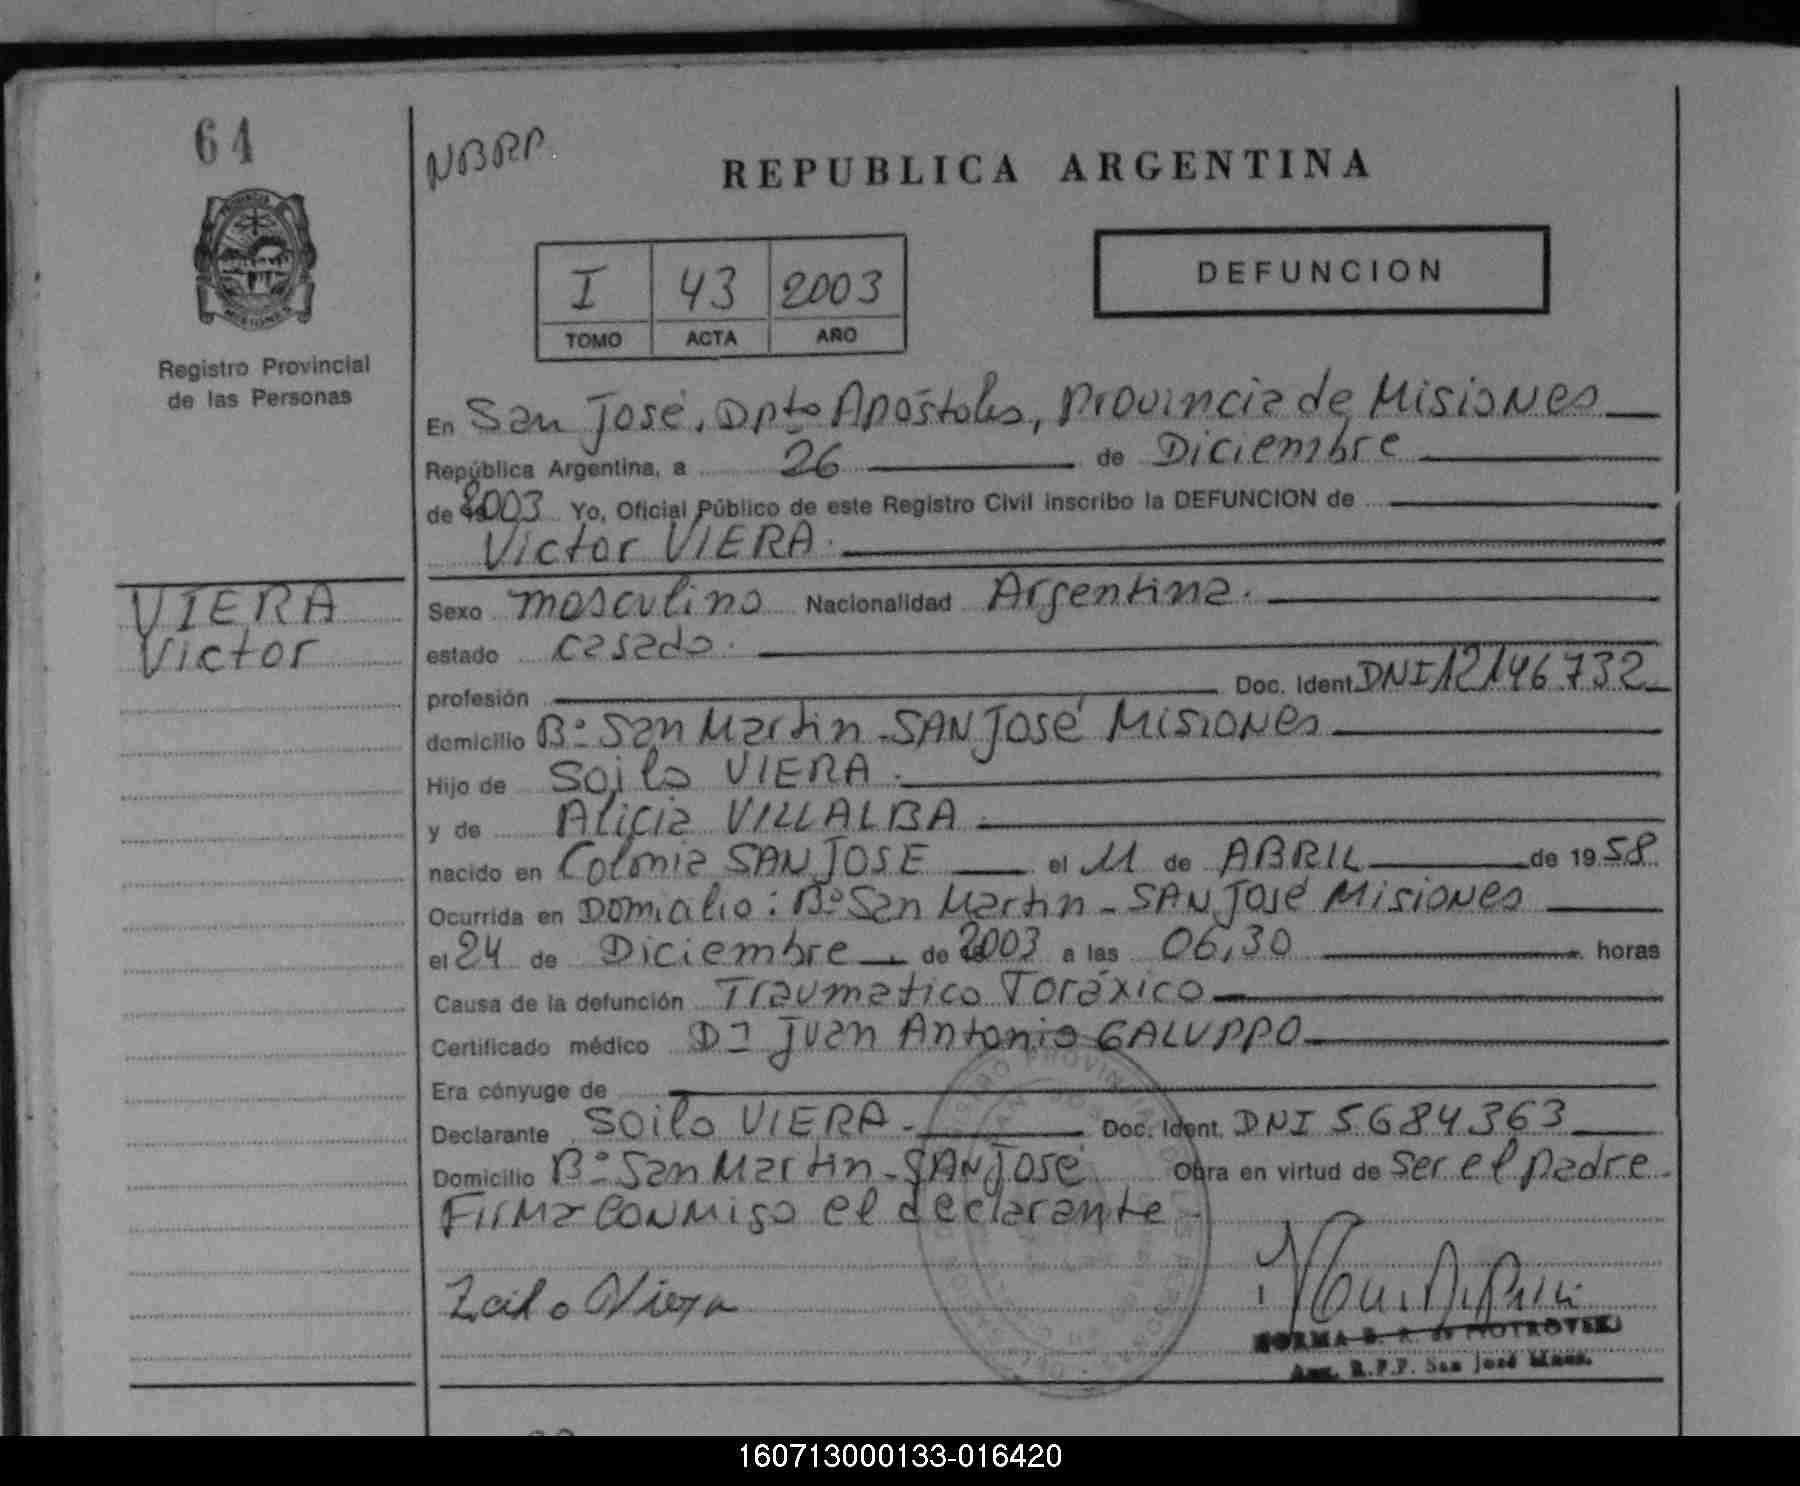 64
NBRP
REPUBLICA ARGENTINA
I 43 2003
TOMO ACTA AÑO
DEFUNCION
Registro Provincial
de las Personas
En San José, Dpto Apóstoles, Provincia de Misiones
República Argentina, a 26 de Diciembre
de 2003 Yo, Oficial Público de este Registro Civil inscribo la DEFUNCION de
Victor VIERA.
VIERA
Victor
Sexo masculino Nacionalidad Argentina.
estado casado.
profesión Doc. Ident. DNI 12146732
domicilio Bº San Martin - SAN José Misiones
Hijo de Soilo VIERA.
y de Alicia VILLALBA.
nacido en Colonia SAN JOSE el 11 de ABRIL de 1958
Ocurrida en Domicilio: Bº San Martin - SAN José Misiones
el 24 de Diciembre de 2003 a las 06,30 horas
Causa de la defunción Traumatico Toráxico
Certificado médico Dr Juan Antonio GALUPPO
Era cónyuge de
Declarante Soilo VIERA. Doc. Ident. DNI 5684363
Domicilio Bº San Martin - SAN José Obra en virtud de ser el padre.
Firma conmigo el declarante
Zoilo Viera
NORMA B. R. de PIOTROVSKI
R.P.P. San José Mnes.
160713000133-016420